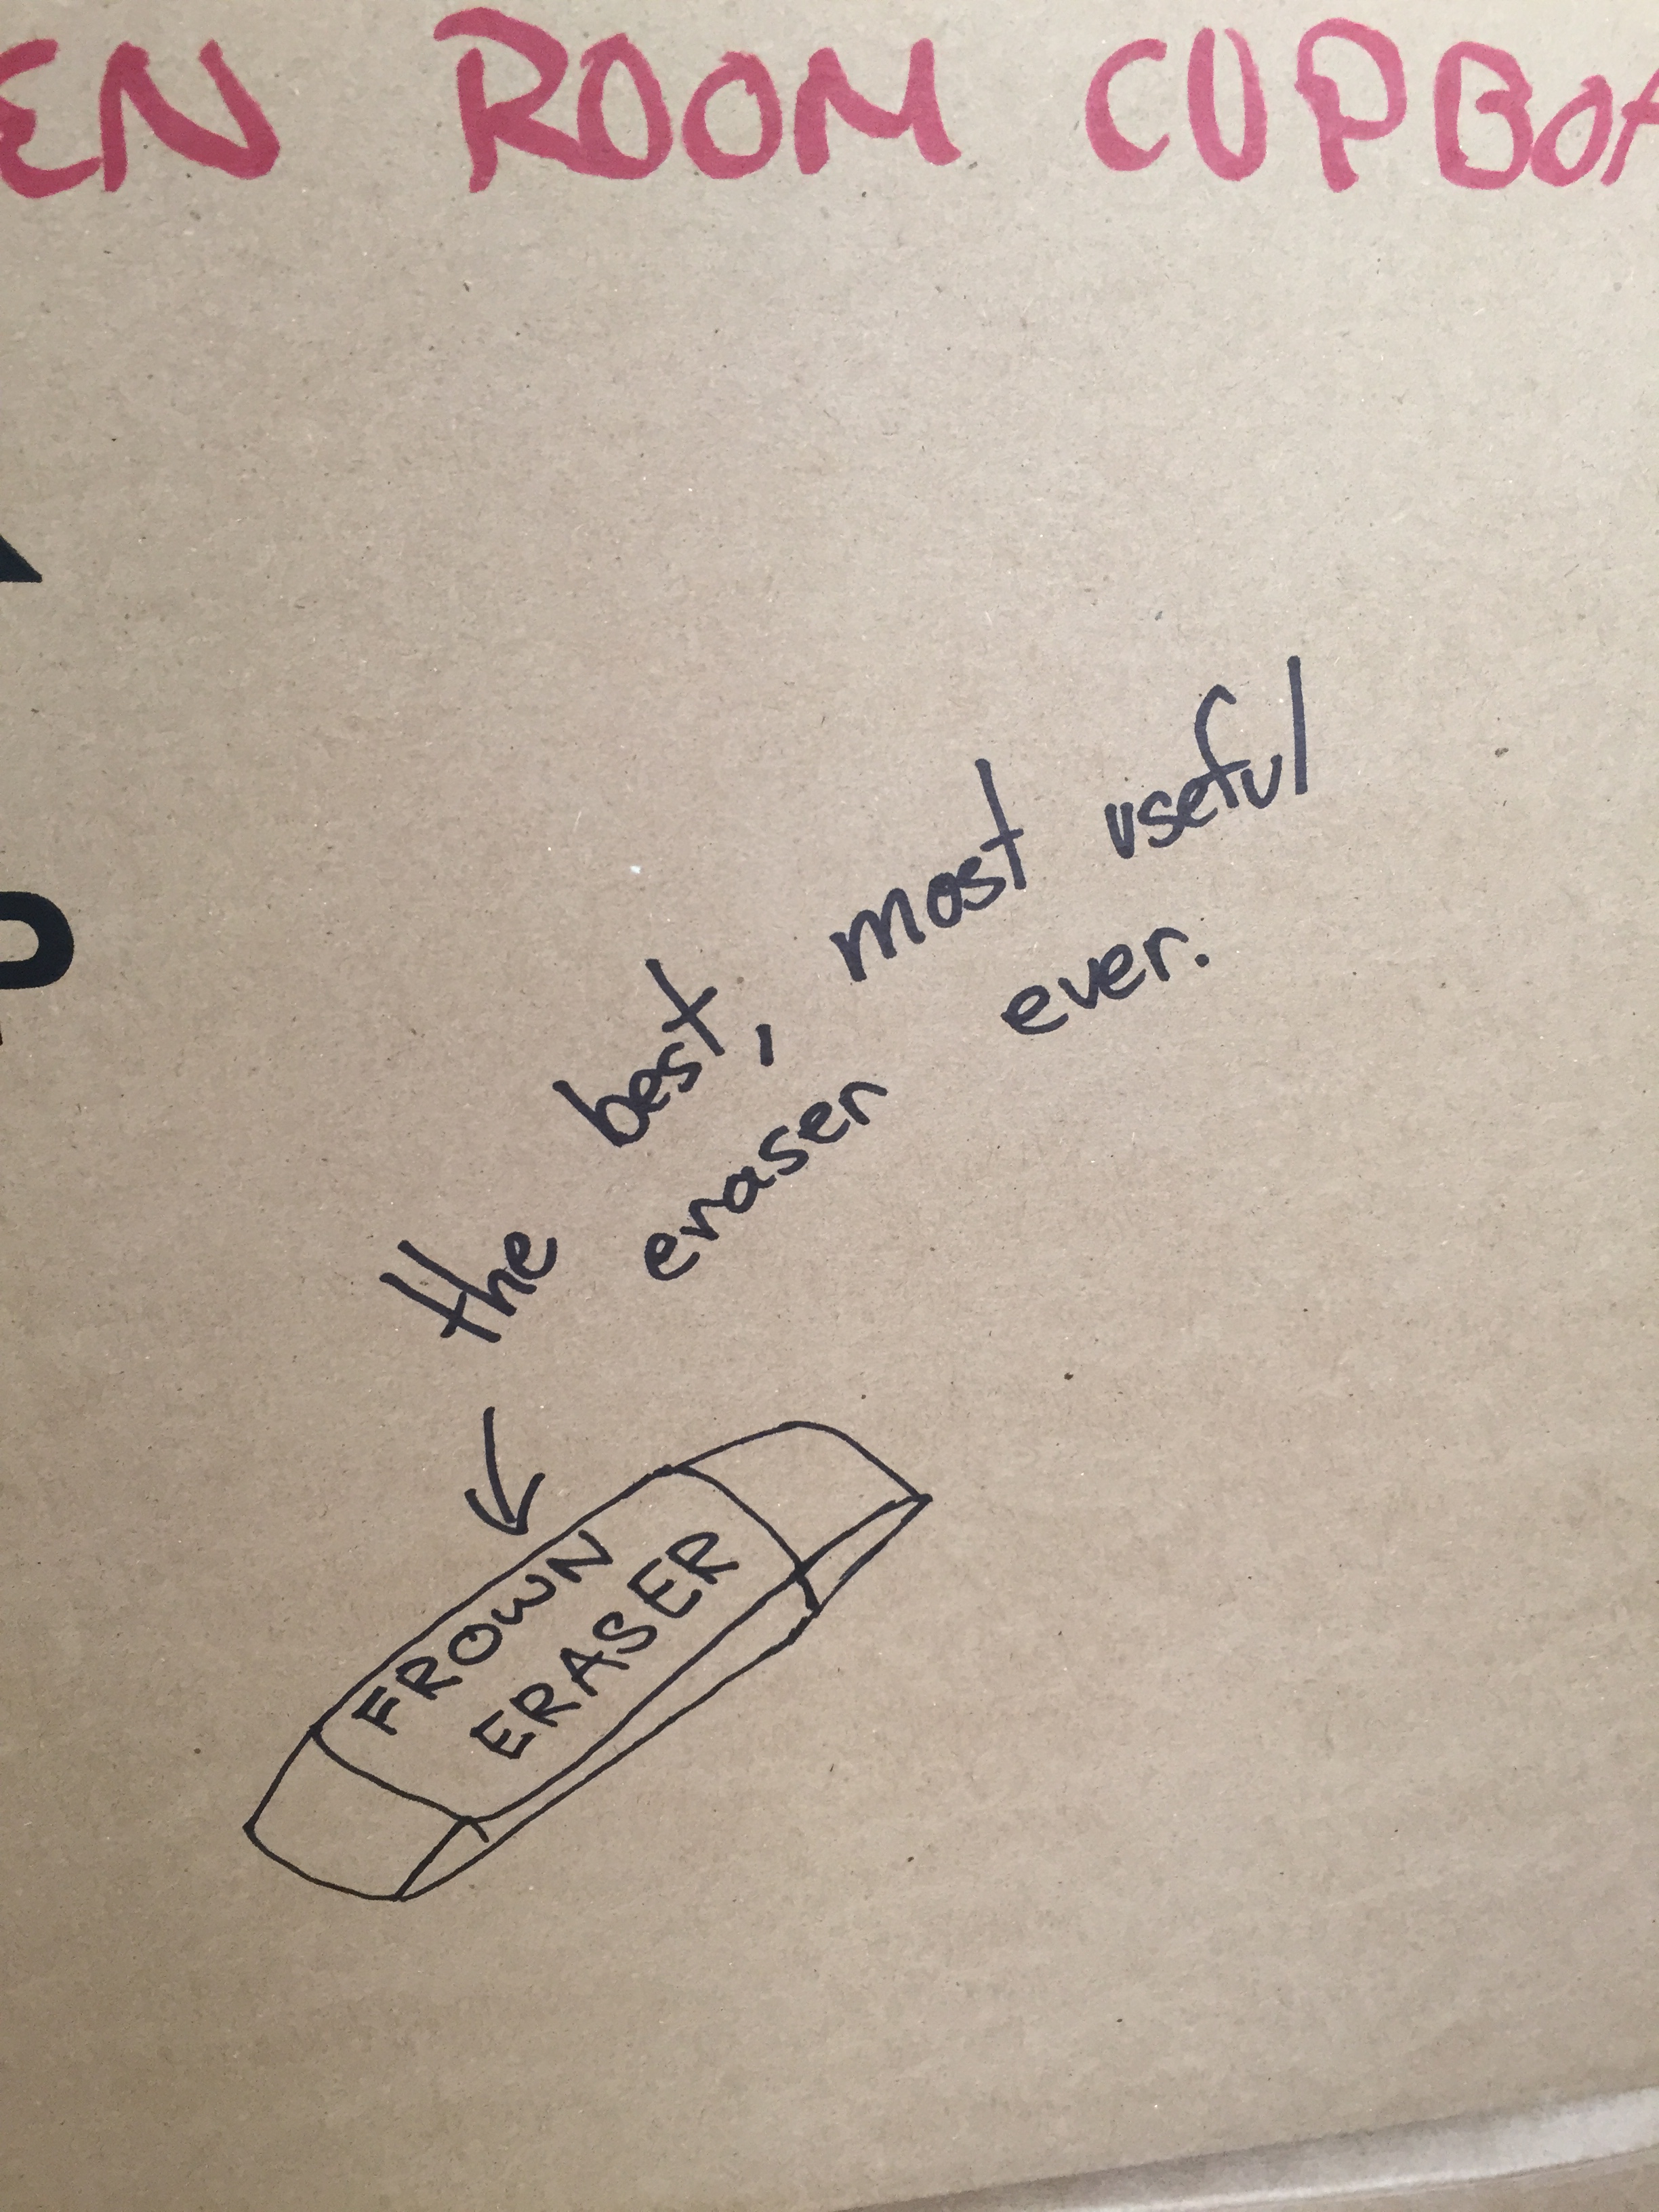 EN ROOM CUPBOA
the best, most useful
eraser ever.
FROWN
ERASER